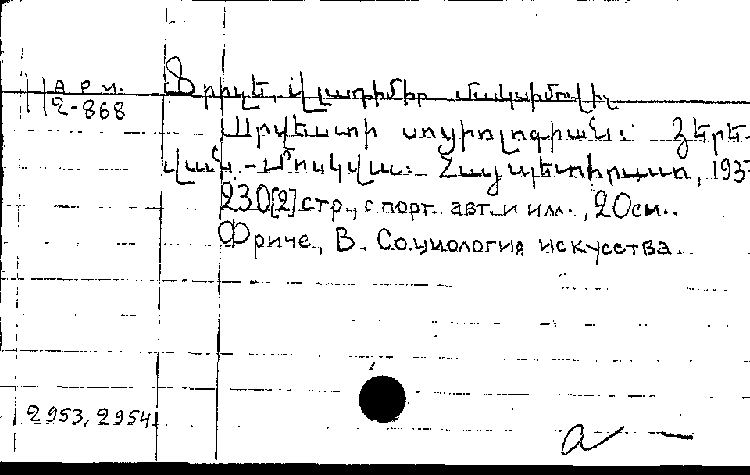 арм.
2-868
Ֆրիչե, Վլադիմիր Մակսիմովիչ
Արվեստի սոցիոլոգիան: Յերե-
վան - Մոսկվա: Հայպետհրատ, 193
230[2] стр., с порт. авт. и илл., 20см.
Фриче, В. Социология искусства.
2953, 2954